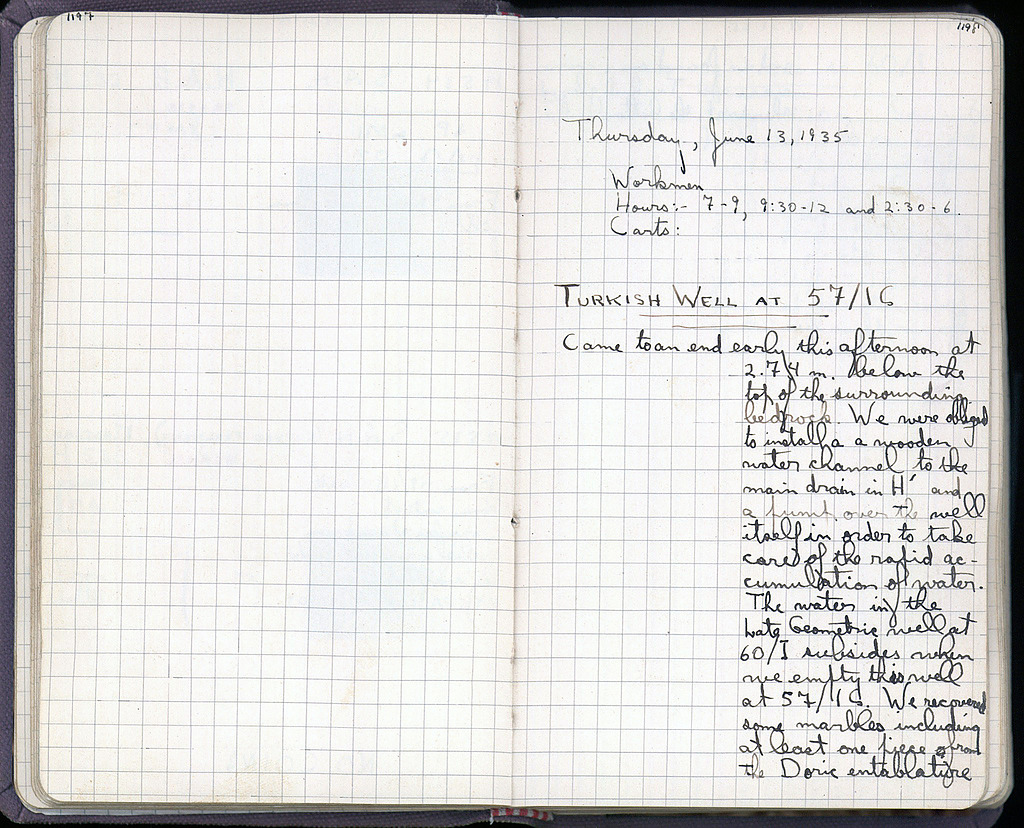 1197
1198
Thursday, June 13, 1935
Workmen
Hours:- 7-9, 9:30-12 and 2:30-6.
Carts:
TURKISH WELL AT 57/1G
Came to an end early this afternoon at
2.74 m. below the
top of the surrounding
bedrock. We were obliged
to install a wooden
water channel to the
main drain in H' and
a pump over the well
itself in order to take
care of the rapid ac-
cumulation of water.
The water in the
Late Geometric well at
60/I subsides when
we empty this well
at 57/1G. We recovered
some marbles including
at least one piece from
the Doric entablature